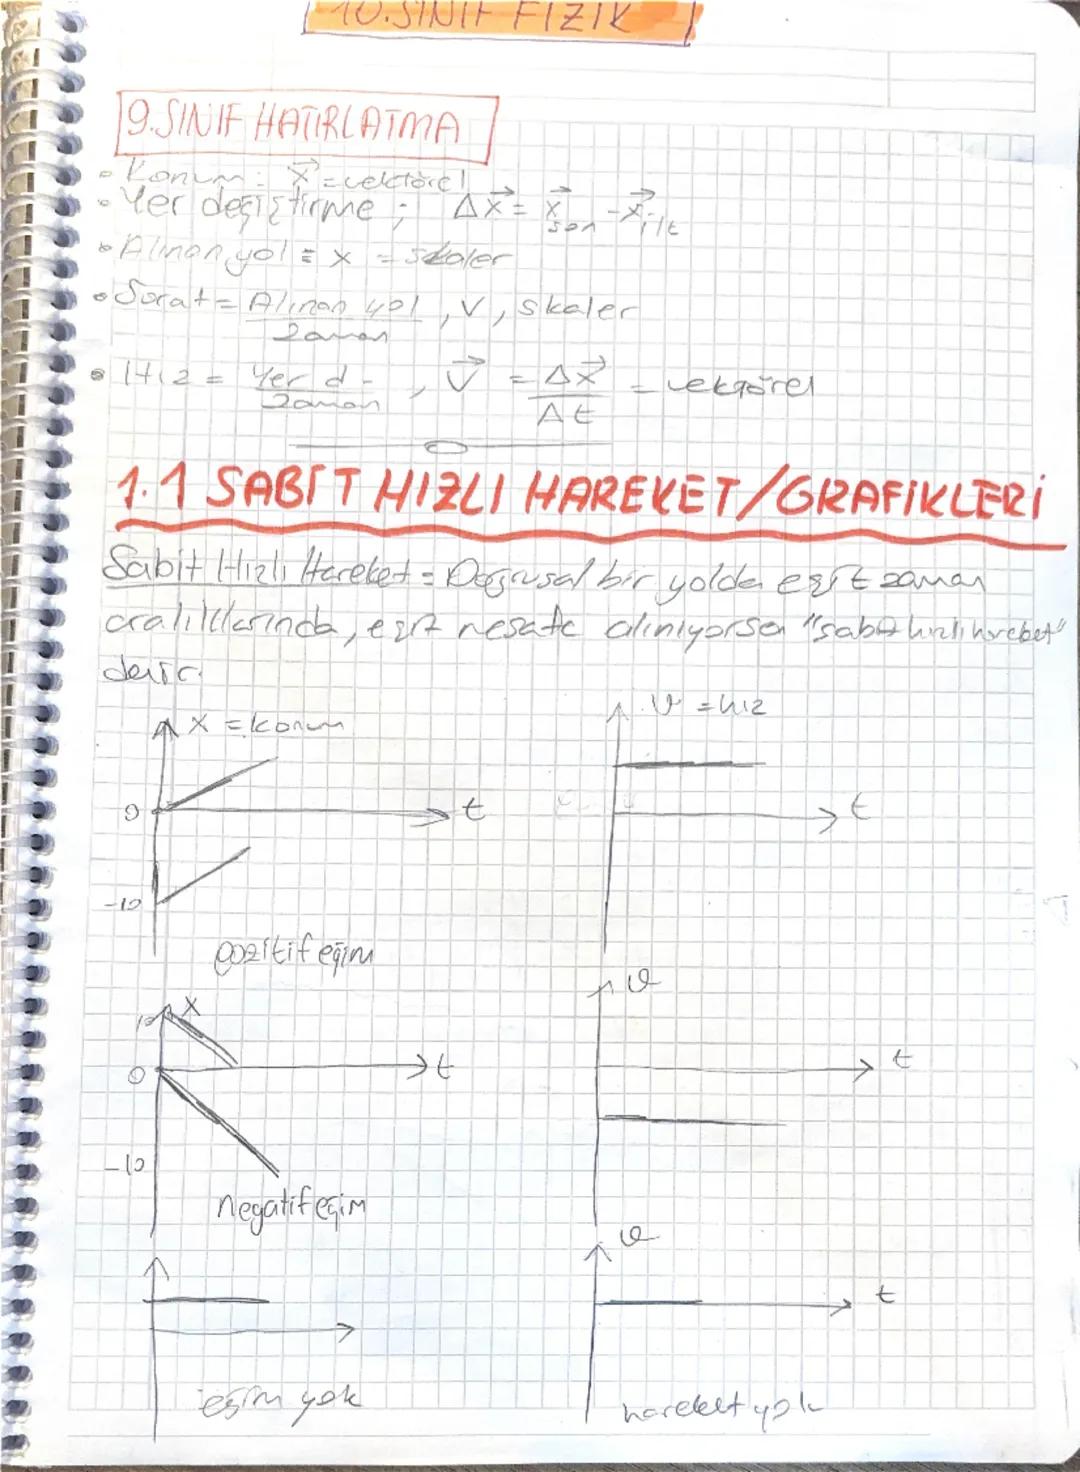 10.SINIF FİZİK
9.SINIF HATIRLATMA
• Konum: X⃗ = vektörel
• Yer değiştirme ; ΔX⃗ = X⃗son - X⃗ilk
• Alınan yol = x = skaler
• Sürat = Alınan yol / Zaman , V, skaler
• Hız = Yer d. / Zaman , V⃗ = ΔX⃗ / Δt = vektörel
1.1 SABİT HIZLI HAREKET/GRAFİKLERİ
Sabit Hızlı Hareket = Doğrusal bir yolda eşit zaman
aralıklarında, eşit mesafe alınıyorsa "sabit hızlı hareket"
denir.
X = konum
v = hız
0
t
t
-10
pozitif eğim
10
X
v
0
t
t
-10
negatif eğim
v
t
eğim yok
hareket yok